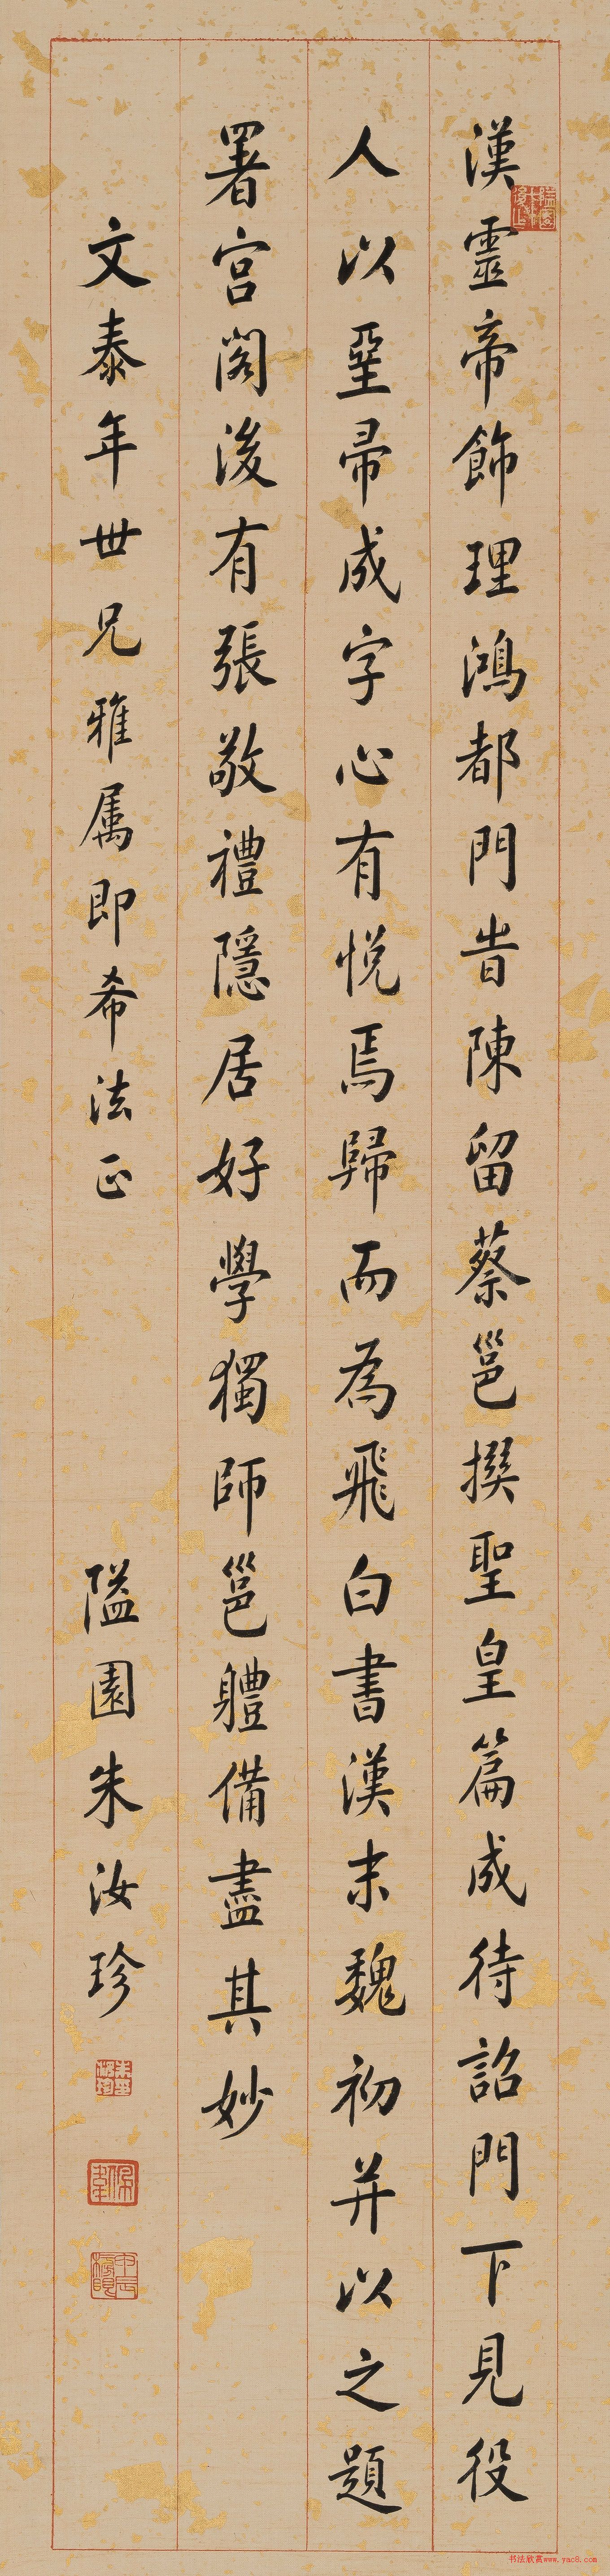 漢靈帝飾理鴻都門旹陳留蔡邕撰聖皇篇成待詔門下見役
人以堊帚成字心有悅焉歸而為飛白書漢末魏初并以之題
署宮閣後有張敬禮隱居好學獨師邕體備盡其妙
文泰年世兄雅属即希法正
隘園朱汝珍
书法欣赏www.yac8.com